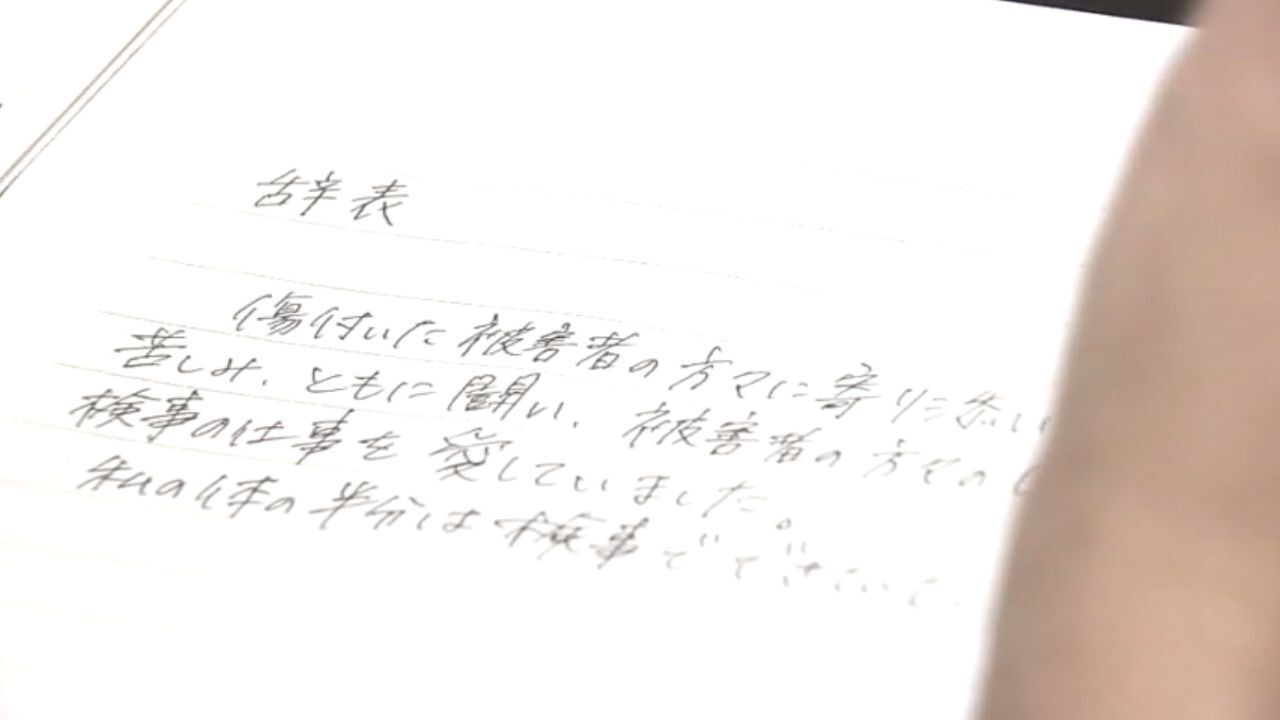 辞表
傷付いた被害者の方々に寄り添い
苦しみ、ともに闘い、被害者の方々の
検事の仕事を愛していました。
私の体の半分は検事でできていて